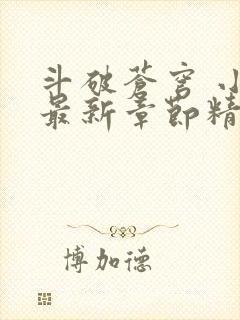 斗破苍穹 小
最新章節精
博加德